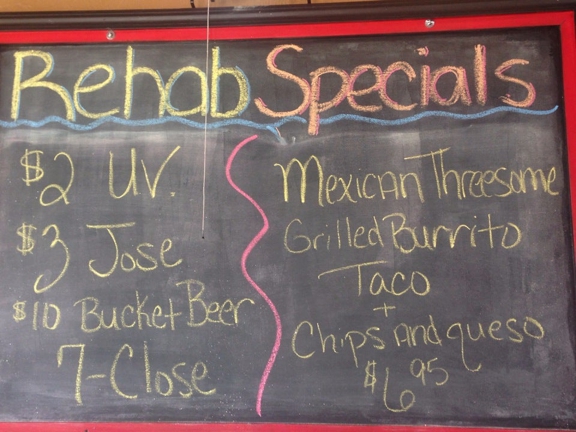 Rehab Specials
$2 UV.
$3 Jose
$10 Bucket Beer
7-Close
Mexican Threesome
Grilled Burrito
Taco
+
Chips And queso
$6.95